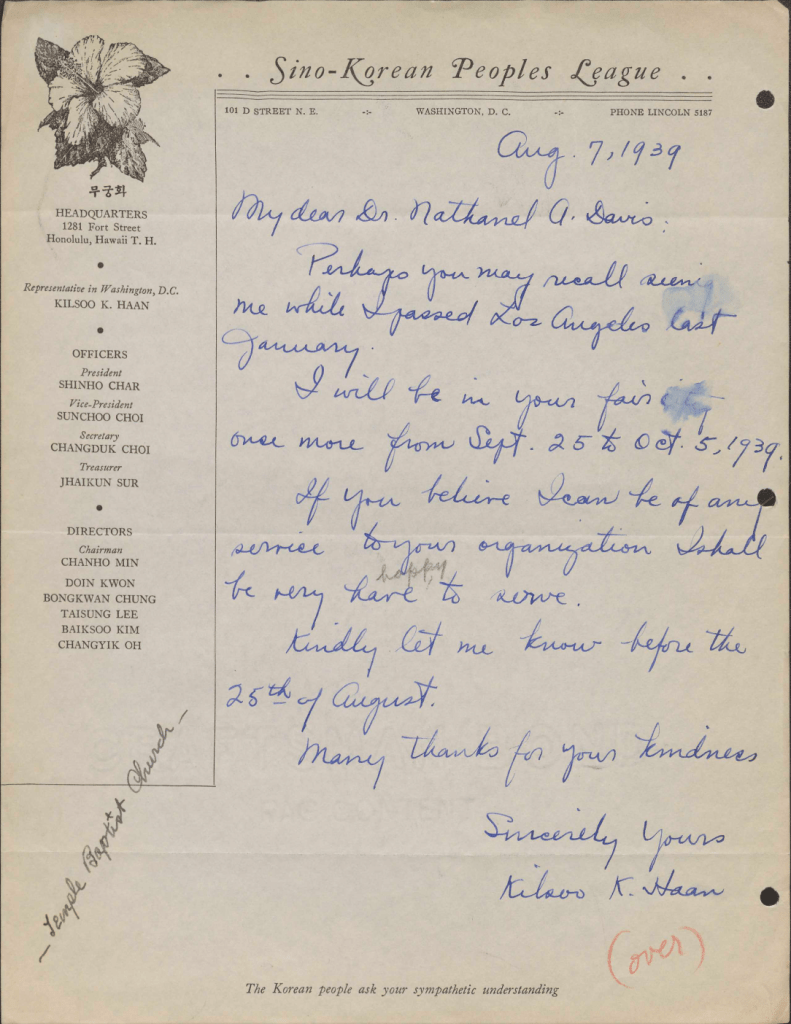 . . Sino-Korean Peoples League . .
101 D STREET N. E. -:- WASHINGTON, D. C. -:- PHONE LINCOLN 5187
무궁화
HEADQUARTERS
1281 Fort Street
Honolulu, Hawaii T. H.
Representative in Washington, D.C.
KILSOO K. HAAN
OFFICERS
President
SHINHO CHAR
Vice-President
SUNCHOO CHOI
Secretary
CHANGDUK CHOI
Treasurer
JHAIKUN SUR
DIRECTORS
Chairman
CHANHO MIN
DOIN KWON
BONGKWAN CHUNG
TAISUNG LEE
BAIKSOO KIM
CHANGYIK OH
Aug. 7, 1939
My dear Dr. Nathanel A. Davis:
Perhaps you may recall seeing
me while I passed Los Angeles last
January.
I will be in your fair city
once more from Sept. 25 to Oct. 5, 1939.
If you believe I can be of any
service to your organization I shall
happy
be very have to serve.
Kindly let me know before the
25th of August.
Many thanks for your kindness
Sincerely Yours
Kilsoo K. Haan
(over)
- Temple Baptist Church -
The Korean people ask your sympathetic understanding